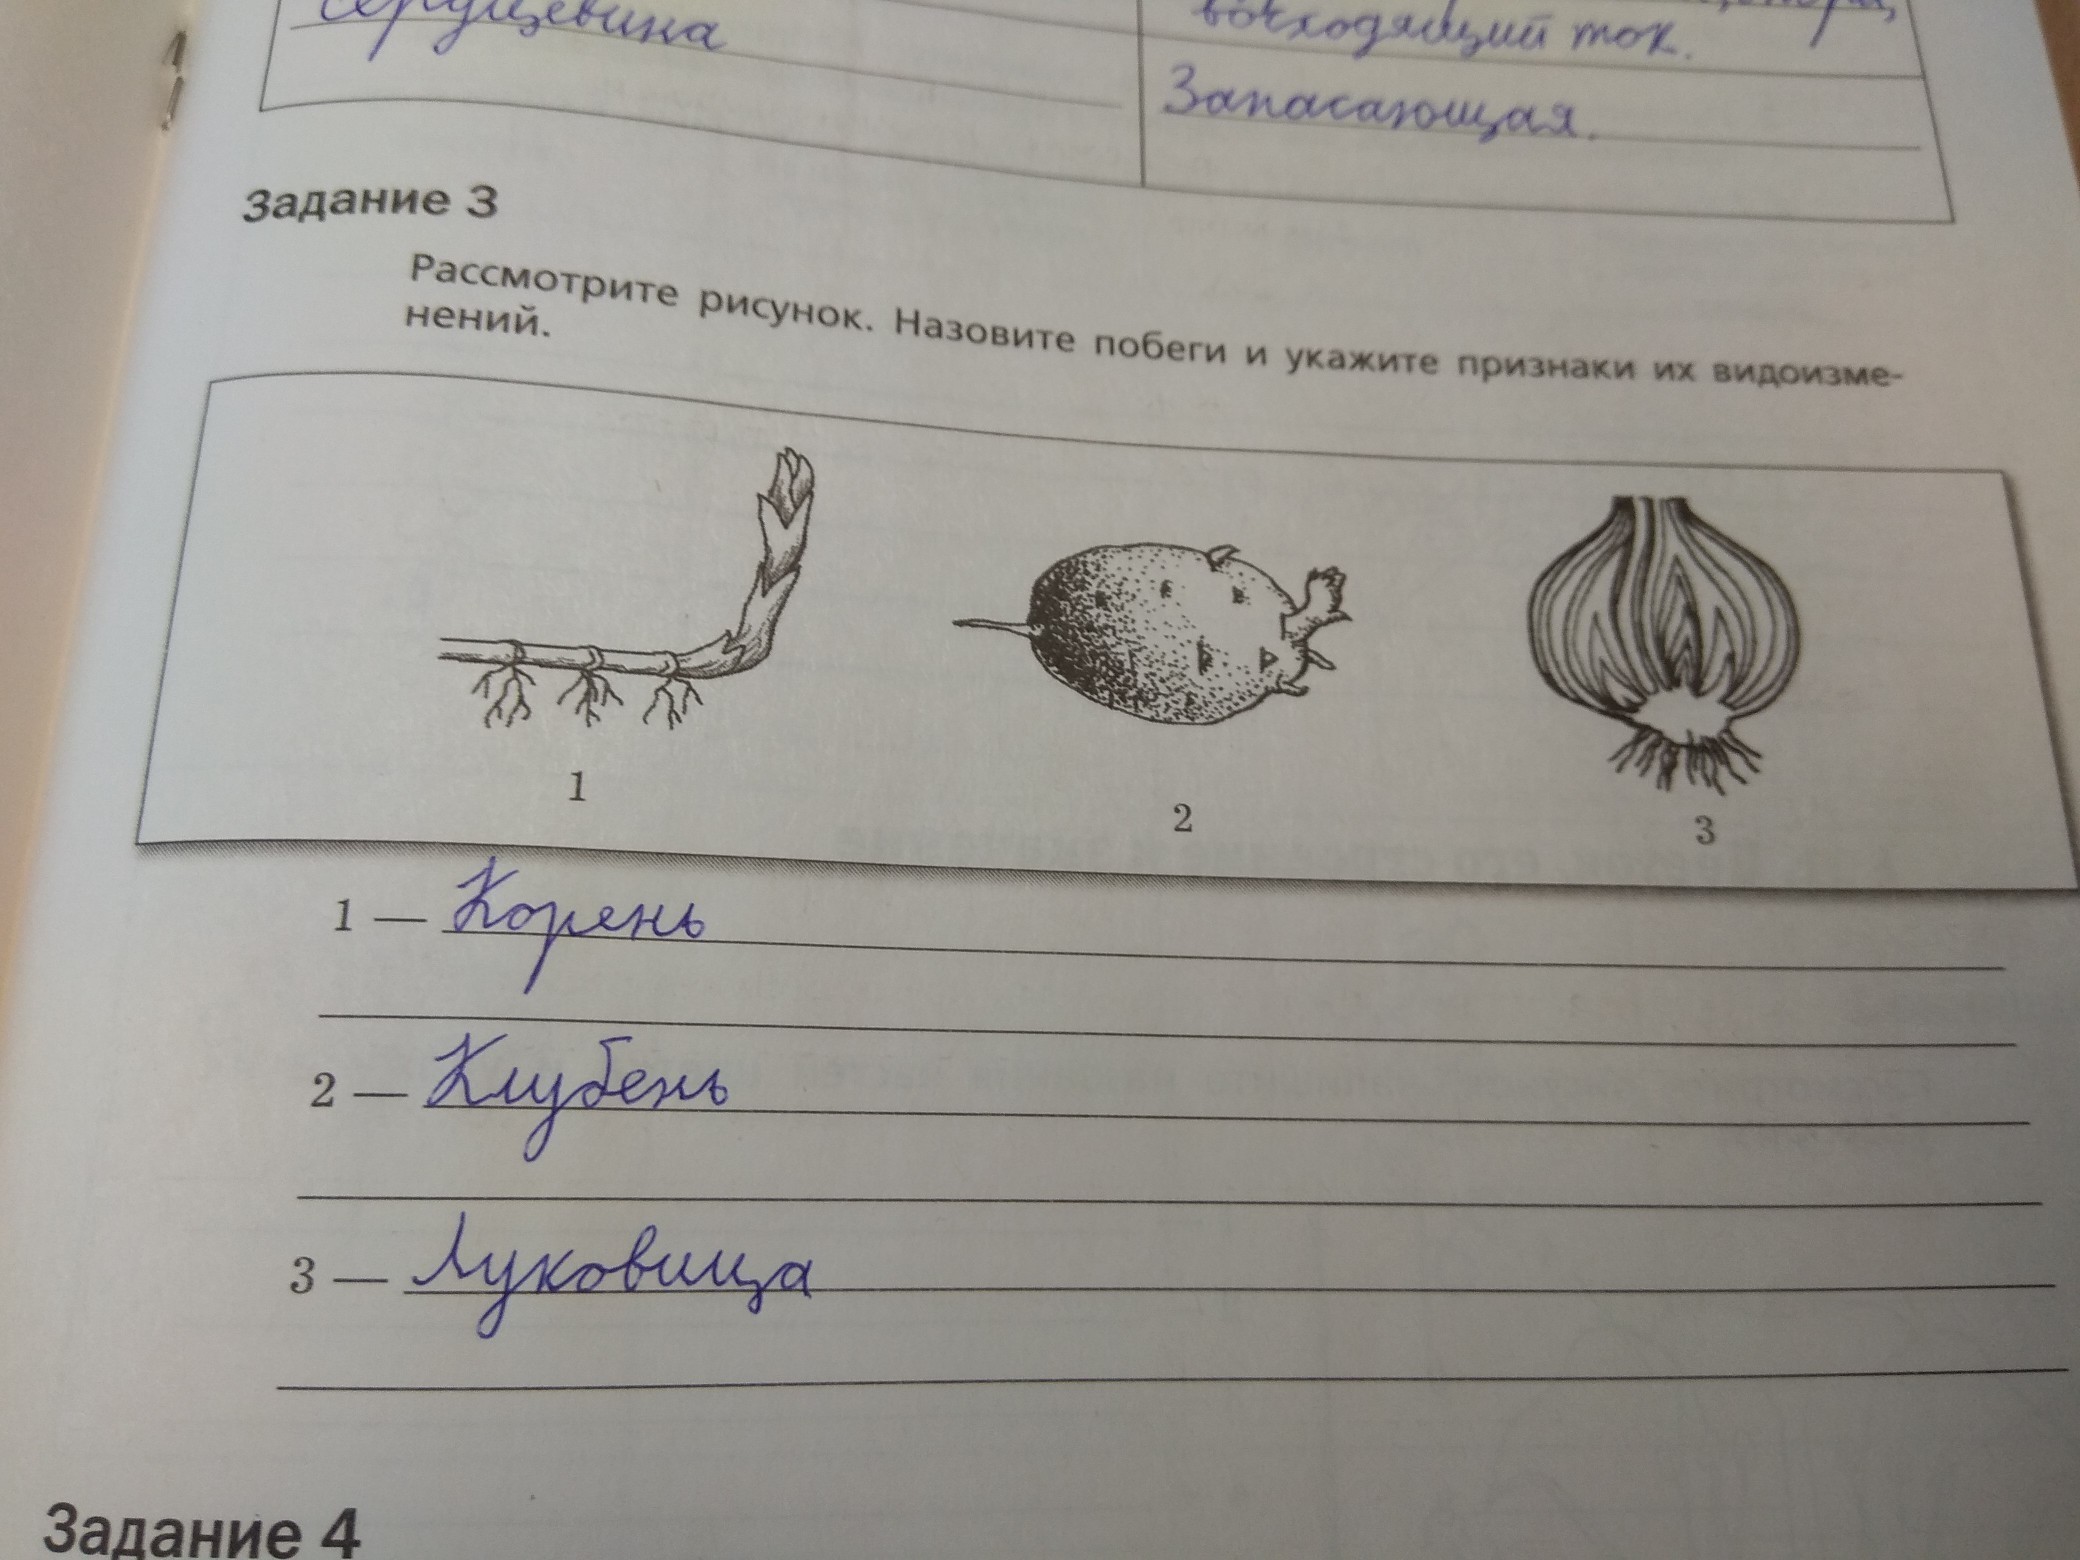 Сердцевина
восходящий ток.
Запасающая.
Задание 3
Рассмотрите рисунок. Назовите побеги и укажите признаки их видоизме-
нений.
1
2
3
1 — Корень
2 — Клубень
3 — Луковица
Задание 4